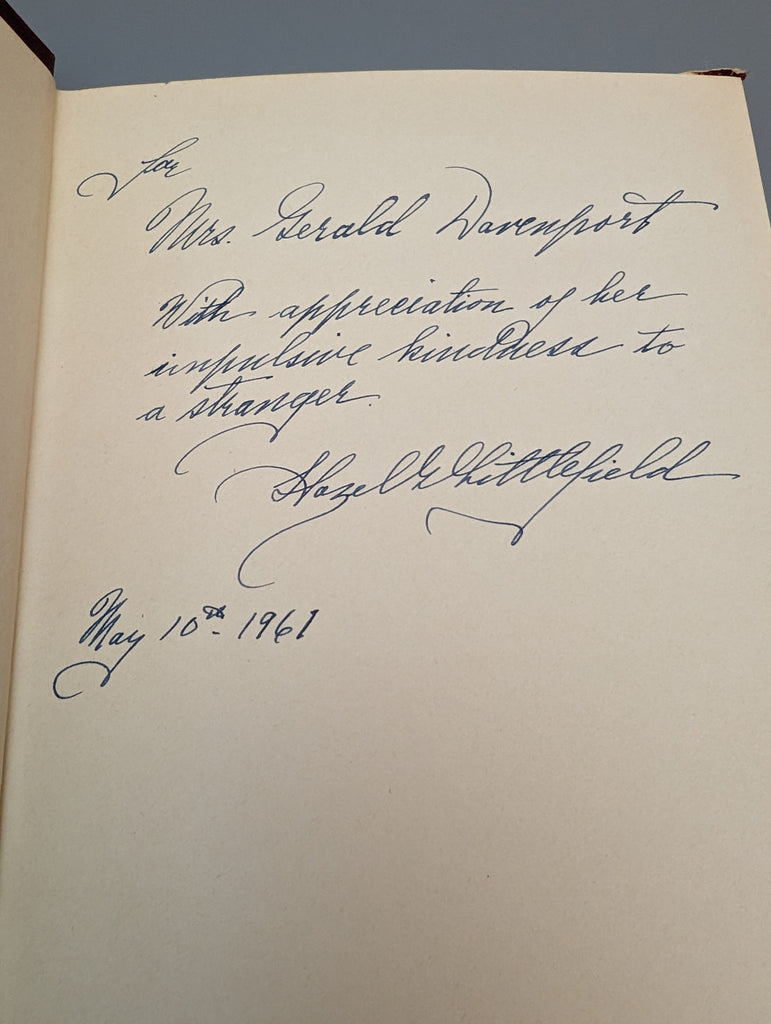 for
Mrs. Gerald Davenport
With appreciation of her
impulsive kindness to
a stranger.
Hazel Littlefield
May 10th. 1961